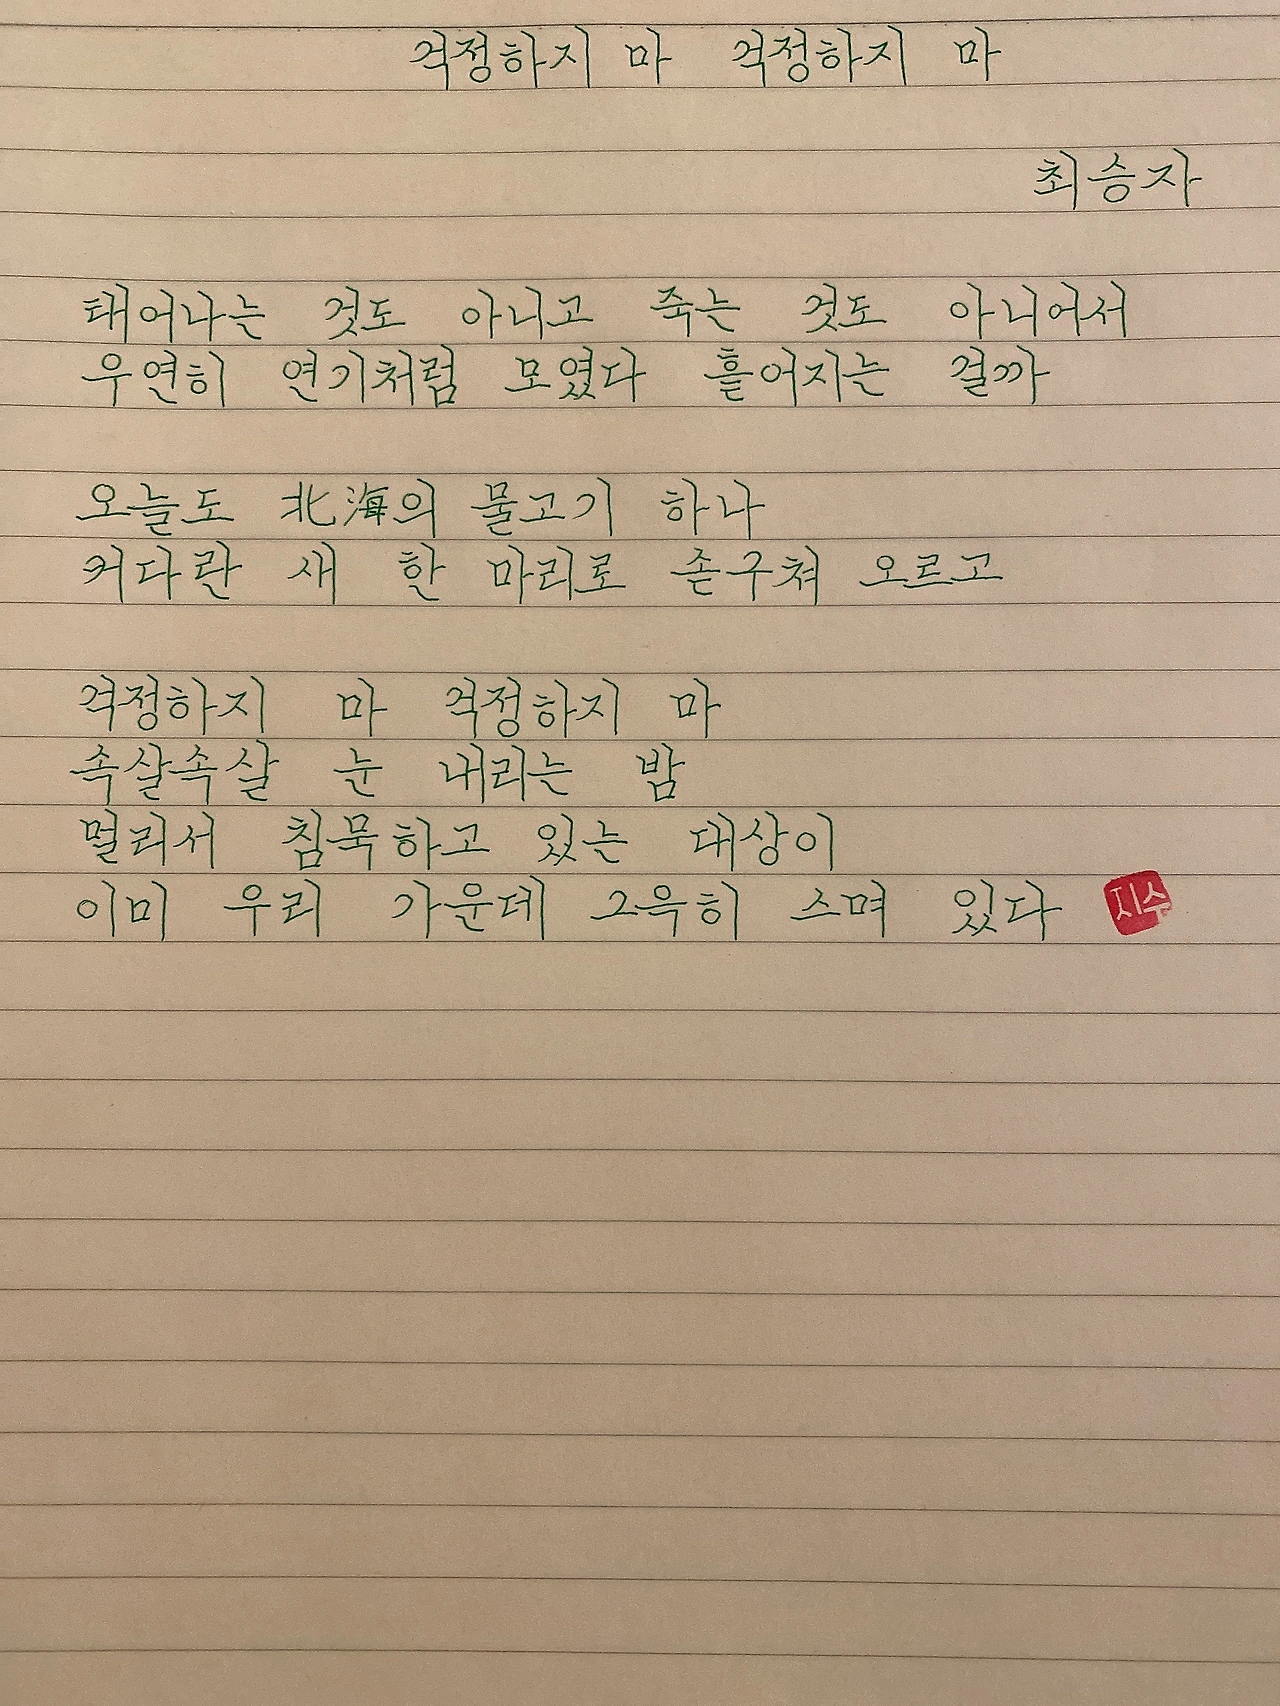 걱정하지 마 걱정하지 마
최승자
태어나는 것도 아니고 죽는 것도 아니어서
우연히 연기처럼 모였다 흩어지는 걸까
오늘도 北海의 물고기 하나
커다란 새 한 마리로 솓구쳐 오르고
걱정하지 마 걱정하지 마
속살속살 눈 내리는 밤
멀리서 침묵하고 있는 대상이
이미 우리 가운데 그윽히 스며 있다 지수